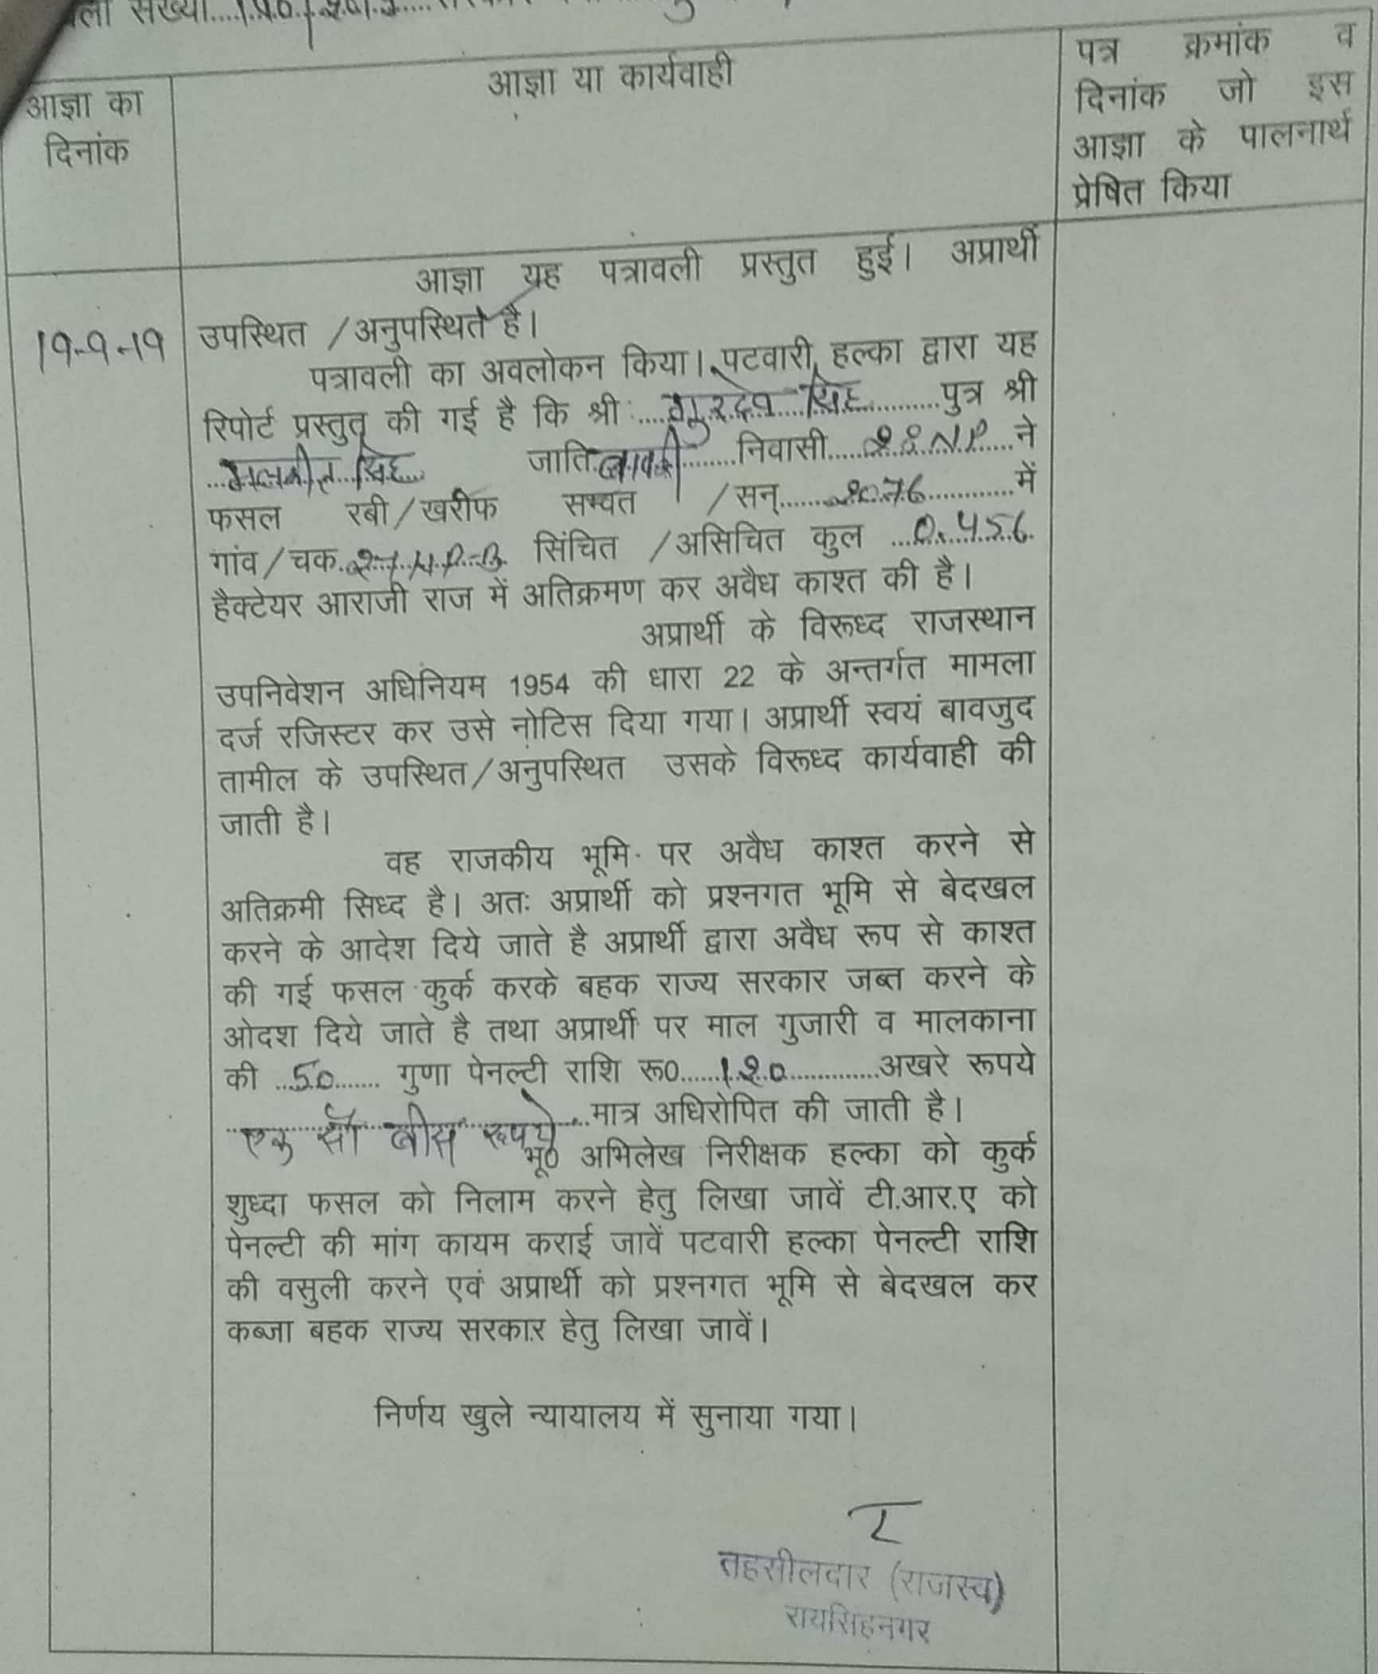 संख्या
आज्ञा का
दिनांक
आज्ञा या कार्यवाही
पत्र क्रमांक व
दिनांक जो इस
आज्ञा के पालनार्थ
प्रेषित किया
19-9-19
आज्ञा यह पत्रावली प्रस्तुत हुई। अप्रार्थी
उपस्थित /अनुपस्थित है।
पत्रावली का अवलोकन किया। पटवारी हल्का द्वारा यह
रिपोर्ट प्रस्तुत की गई है कि श्री गुरदेव सिंह पुत्र श्री
मलकीत सिंह जाति निवासी 22NP ने
फसल रबी/खरीफ सम्वत /सन् 2076 में
गांव/चक 27NP-B सिंचित /असिचित कुल 0.456
हैक्टेयर आराजी राज में अतिक्रमण कर अवैध काश्त की है।
अप्रार्थी के विरूध्द राजस्थान
उपनिवेशन अधिनियम 1954 की धारा 22 के अन्तर्गत मामला
दर्ज रजिस्टर कर उसे नोटिस दिया गया। अप्रार्थी स्वयं बावजुद
तामील के उपस्थित/अनुपस्थित उसके विरूध्द कार्यवाही की
जाती है।
वह राजकीय भूमि पर अवैध काश्त करने से
अतिक्रमी सिध्द है। अतः अप्रार्थी को प्रश्नगत भूमि से बेदखल
करने के आदेश दिये जाते है अप्रार्थी द्वारा अवैध रूप से काश्त
की गई फसल कुर्क करके बहक राज्य सरकार जब्त करने के
ओदश दिये जाते है तथा अप्रार्थी पर माल गुजारी व मालकाना
की 50 गुणा पेनल्टी राशि रू0 120 अखरे रूपये
एक सौ बीस रूपये मात्र अधिरोपित की जाती है।
भू0 अभिलेख निरीक्षक हल्का को कुर्क
शुध्दा फसल को निलाम करने हेतु लिखा जावें टी.आर.ए को
पेनल्टी की मांग कायम कराई जावें पटवारी हल्का पेनल्टी राशि
की वसुली करने एवं अप्रार्थी को प्रश्नगत भूमि से बेदखल कर
कब्जा बहक राज्य सरकार हेतु लिखा जावें।
निर्णय खुले न्यायालय में सुनाया गया।
तहसीलदार (राजस्व)
रायसिंहनगर